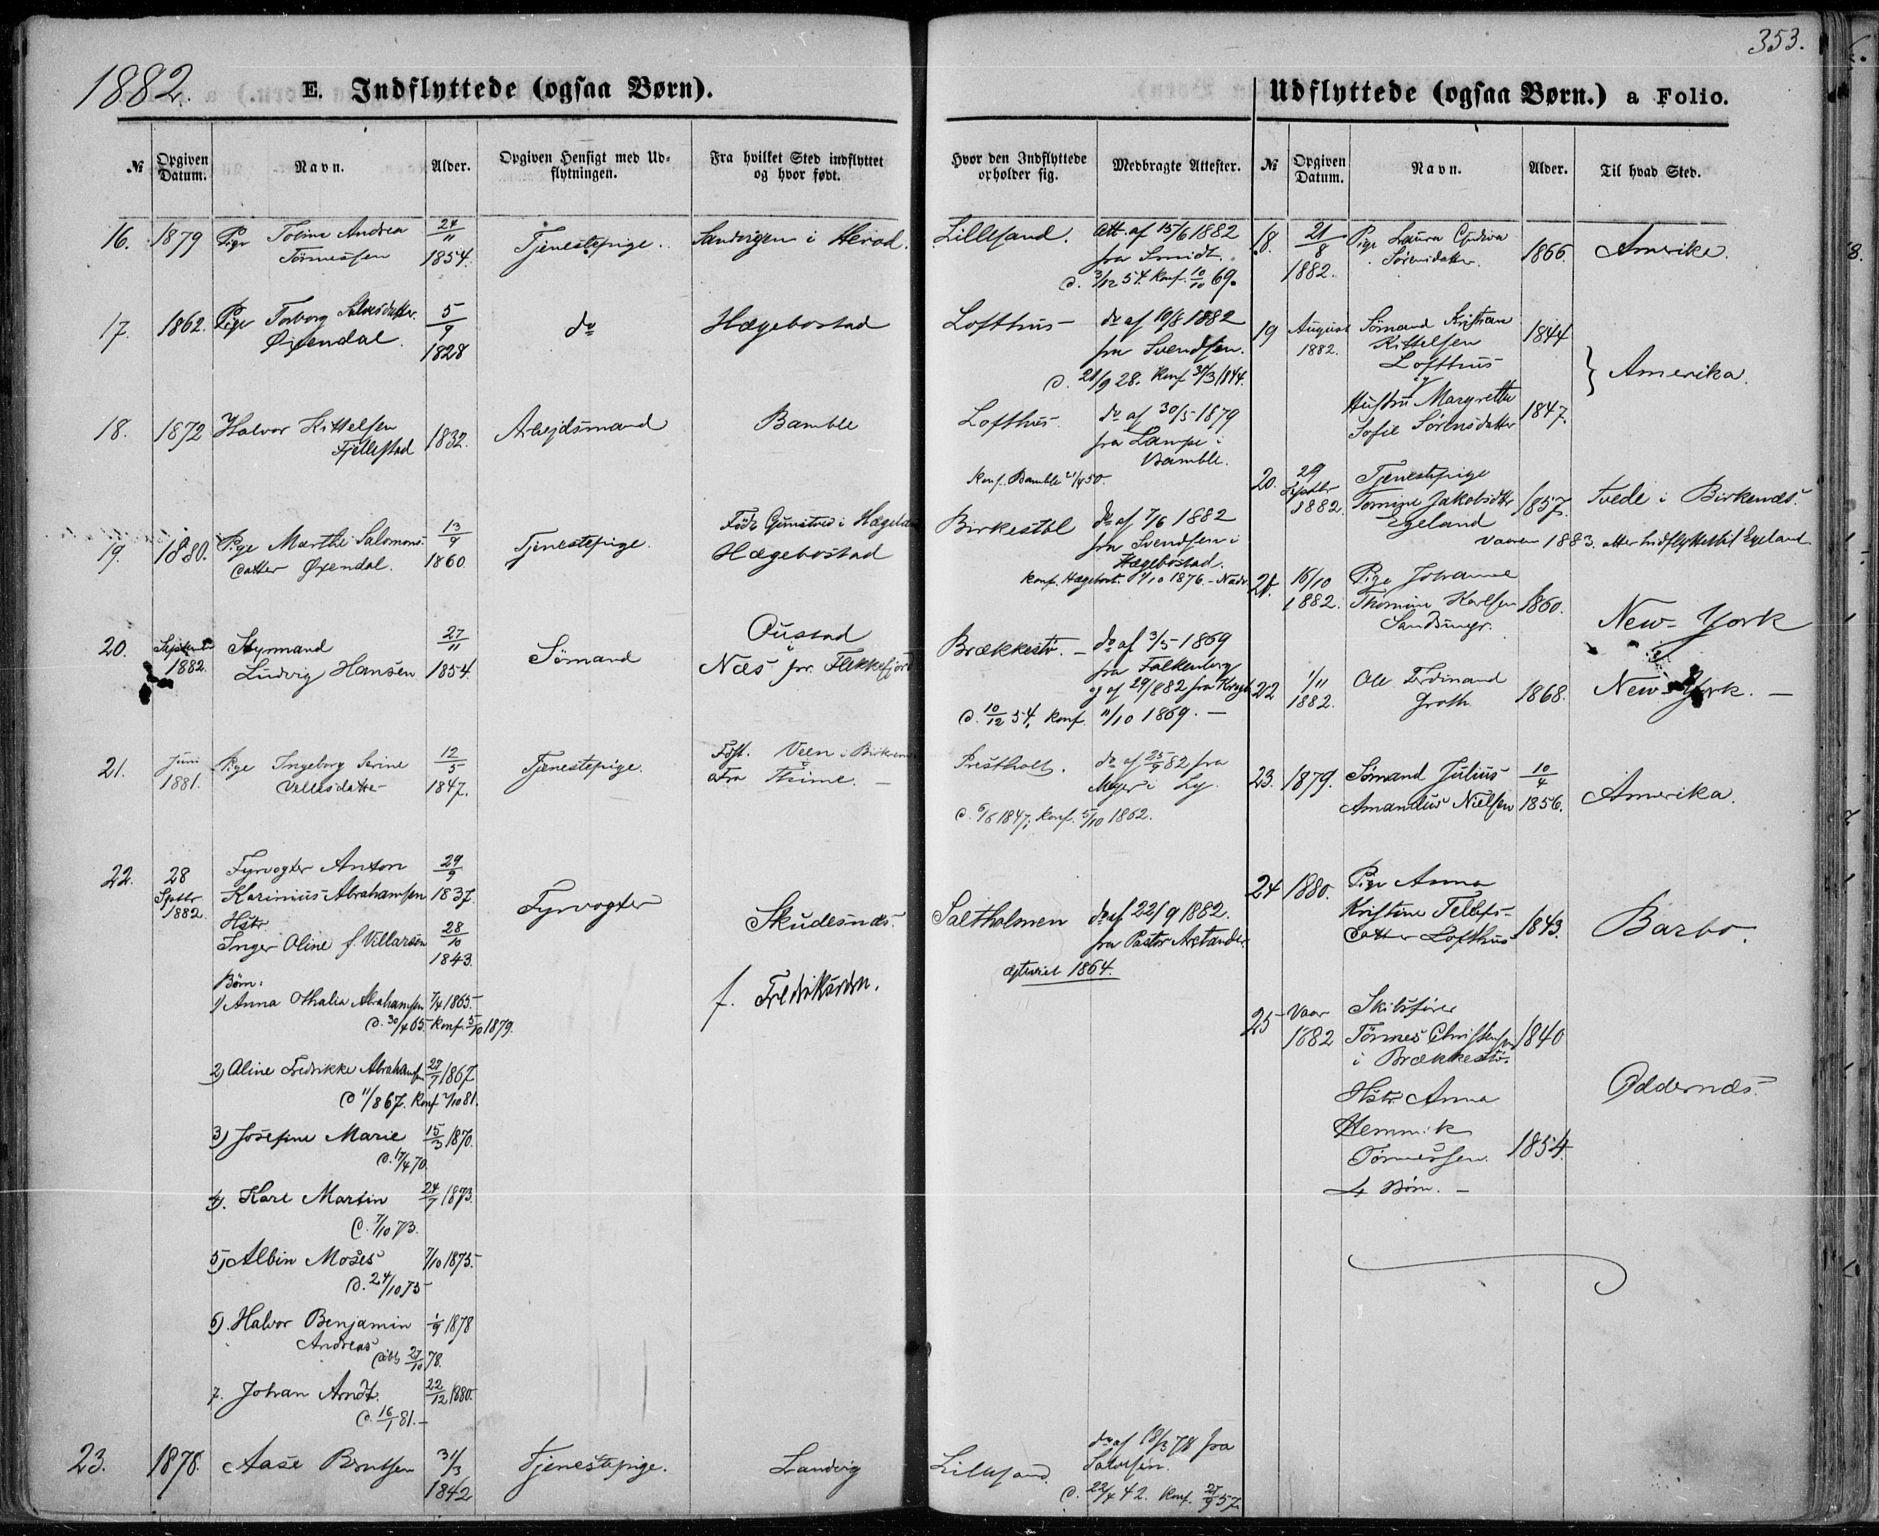 1882.
353.
E. Indflyttede (ogsaa Børn).
Udflyttede (ogsaa Børn.) a Folio.
№ Opgiven Datum. Navn. Alder. Opgiven Hensigt med Udflytningen. Fra hvilket Sted indflyttet og hvor født. Hvor den Indflyttede opholder sig. Medbragte Attester.
16. 1879 Pige Tobine Andrea 24/11 Tjenestepige. Sandvigen i Herad. Lillesand. Att. af 15/6 1882
Tørnessen 1854. fra Smidt.
d. 3/12 54. Konf. 10/10 69.
17. 1862. Pige Torborg Salvesdatter 5/9 do Hægebostad Lofthus do af 19/8 1882
Øiendal. 1828 fra Svendsen.
d. 21/9 28. Konf. 31/3 1844.
18. 1872 Halvor Kittelsen 1832. Arbejdsmand Bamble Lofthus. do af 30/5 1879
Fjellestad fra Lampe i
Bamble.
Konf. Bamble 21/4 50.
19. 1880. Pige Marthe Salomons- 13/9 Tjenestepige. Født i Hægeland Birkestøl do af 7/6 1882
datter Øiendal. 1860 Hægebostad fra Svendsen i
Hægebostad.
Konf. Hægebost. 1/10 1876.
20. Septemb Styrmand 27/11 Sømand i Brækkestø. do af 3/5 1869
1882. Ludvig Hansen 1854. Næs pr. Flekkefjord fra Falkenberg
og af 29/8 82 fra
d. 10/12 54. Konf. 11/10 1869.
21. Juni Pige Ingeborg Serine 12/5 Tjenestepige. Født. Veen i Birkenæs Prestholt. do af 25/9 82 fra
1881. 1847. Fra Thime. Meyer i Ly.
d. 6/6 1847; Konf. 5/10 1862.
22. 28 Fyrvogter Anton 29/9
Septbr Karinius Abrahamsen 1837. Fyrvogter Skudesnæs. Saltholmen do af 22/9 1882.
1882. Hstr. 28/10 fra Pastor Arstander.
Inger Oline f. Villarsen 1843. ægteviet 1864.
Børn: f. Fredriksværn.
1) Anna Othalia Abrahamsen 7/4 1865.
d. 30/4 65. Konf. 5/10 1879.
2) Aline Fredrikke Abrahamsen 27/7 1867
d. 11/8 67. Konf. 2/10 81.
3) Josefine Marie 15/3 1870.
d. 17/4 70.
4). Karl Martin 24/7 1873.
d. 7/10 73.
5) Albin Moses 7/10 1875.
d. 24/10 75
6). Halvor Benjamin 1/9 1878
Andreas
døbt 27/10 78.
7. Johan Arndt. 22/12 1880.
d. 16/1 81.
23. 1878. Aase Berntsen 31/3 Tjenestepige. Landvig Lillesand. do af 18/3 78 fra
1842 Salvesen.
d. 22/4 42. Konf. 27/9 57.
№ Opgiven Datum. Navn. Alder. Til hvad Sted.
18. 21/8 Pige Laura 1866. Amerika.
1882. Sørensdatter.
19 August Sømand Kristian 1844
1882. Kittelsen
Lofthus
og } Amerika.
Hustru Margrethe 1847.
Sofie Sørensdatter
20. 29 Tjenestepige
Septbr Tomine Jakobsdtr 1857. Tvede i Birkenæs.
1882. Egeland
Vaaren 1883. atter Indflyttet til Egeland.
21. 16/10 Pige Johanne
1882. Thomine Karlsen 1860. New-York
22 1/11 Ole Ferdinand 1868. New-York.
1882. Groth.
23. 1879. Sømand Julius 10/4 Amerika.
Amandus Nielsen 1856.
24 1880. Pige Anna
Kristine Tellefs- 1843. Barbo.
datter Lofthus
25 Vaar Skibsfører
1882 Tørnes Christensen 1840
i Brækkestø. Oddernæs.
Hstr. Anna
Hennik
Tørnessen. 1854.
4 Børn.